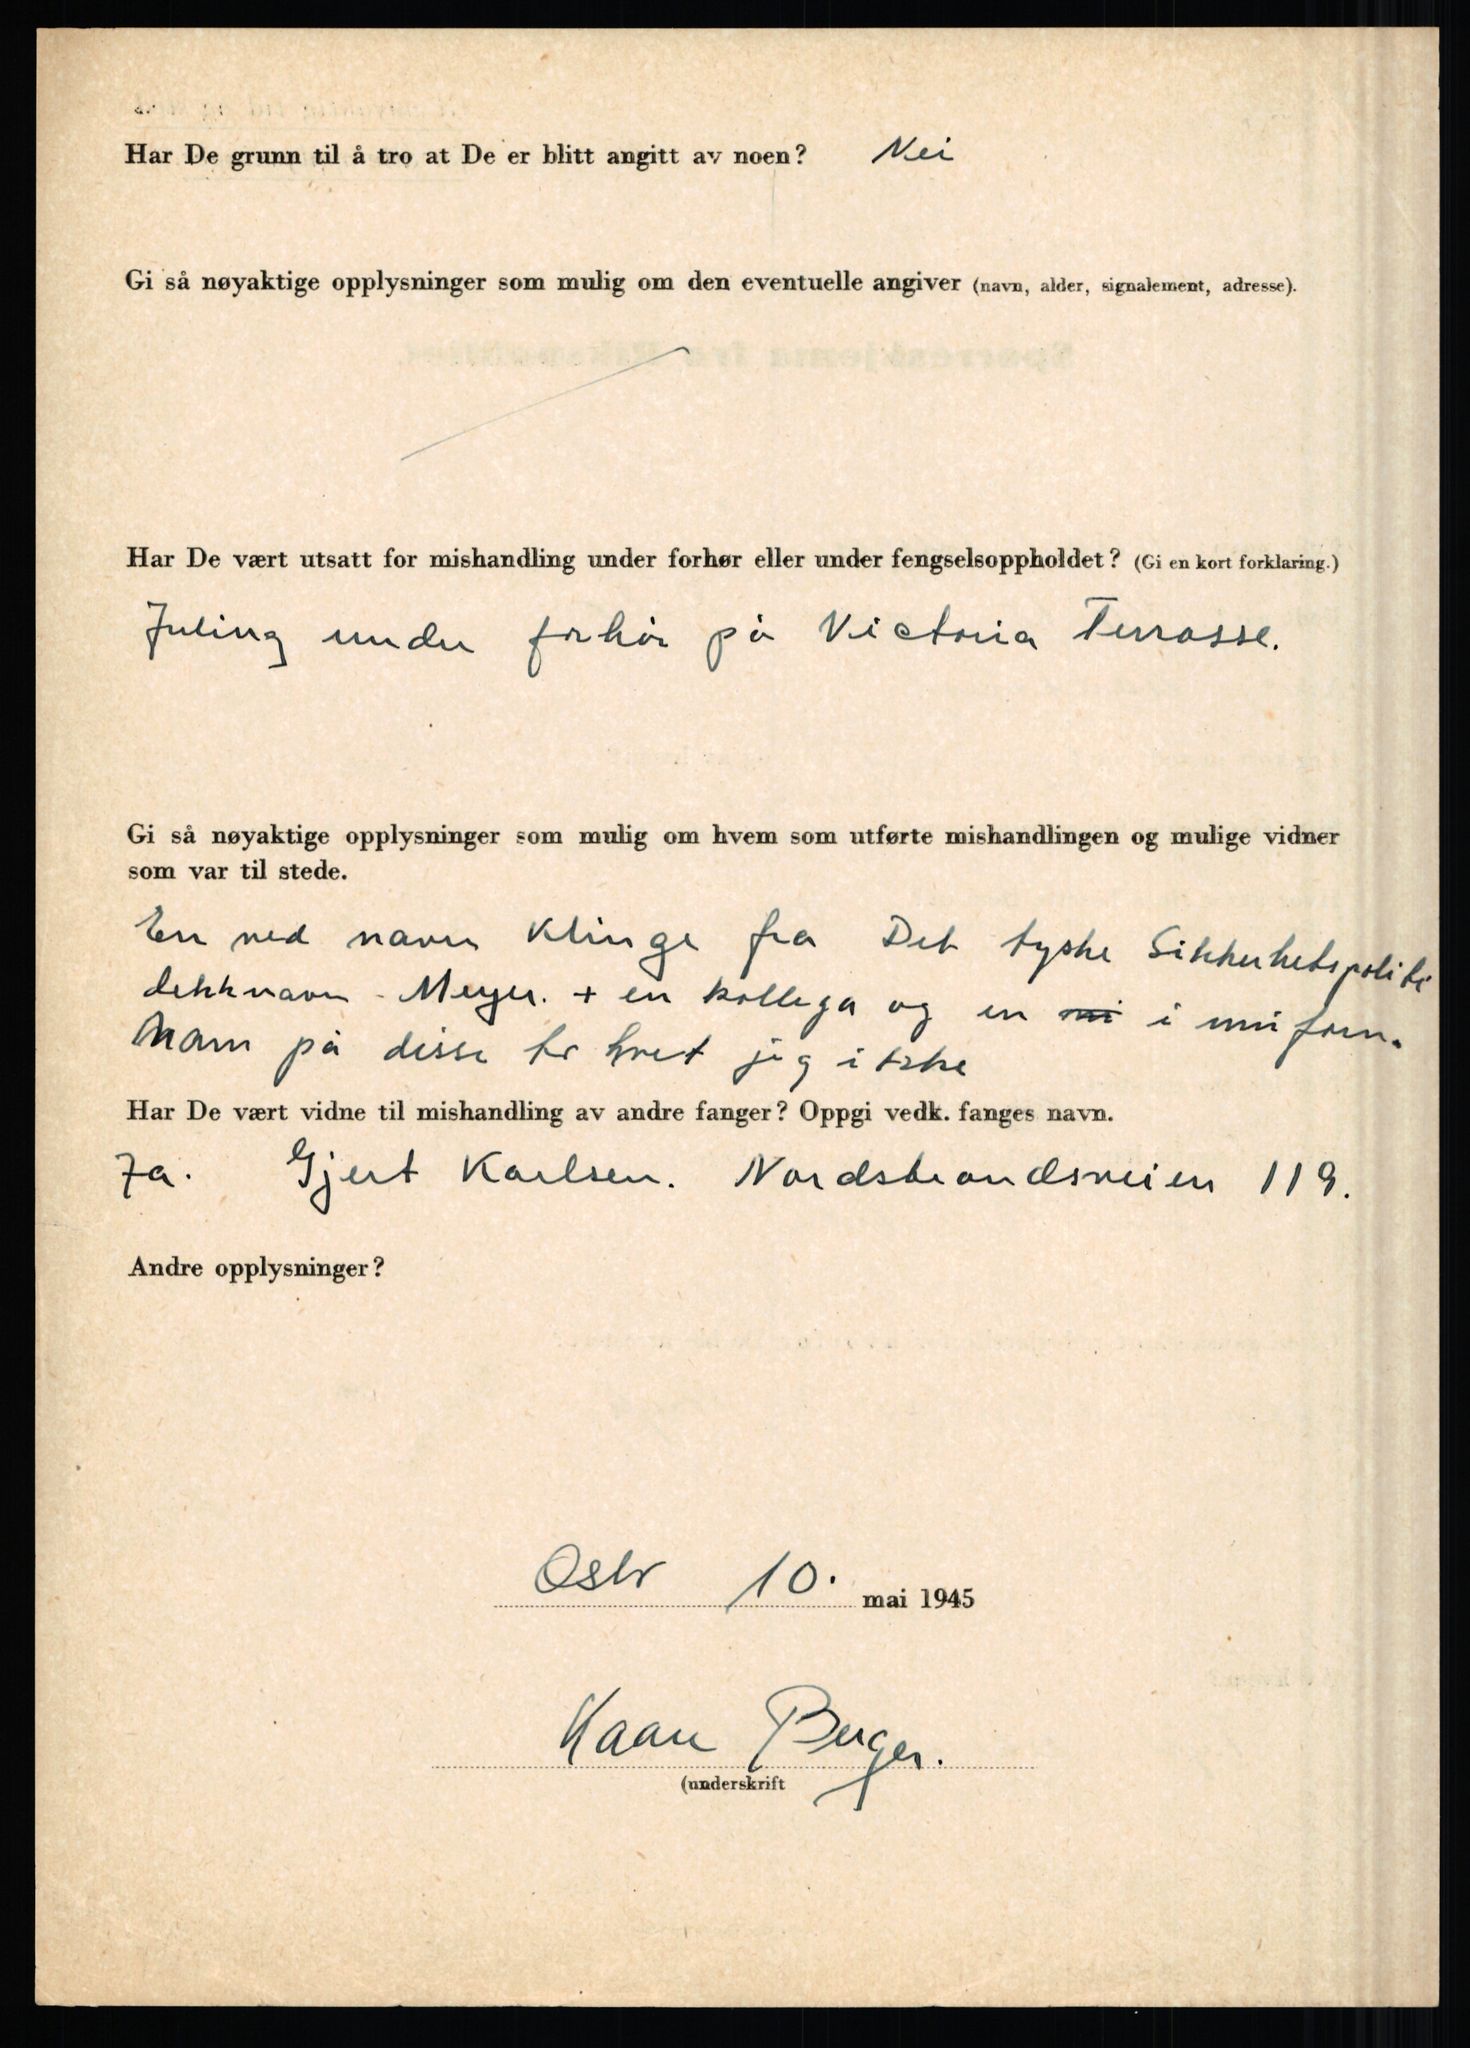 Har De grunn til å tro at De er blitt angitt av noen? Nei
Gi så nøyaktige opplysninger som mulig om den eventuelle angiver (navn, alder, signalement, adresse).
Har De vært utsatt for mishandling under forhør eller under fengselsoppholdet? (Gi en kort forklaring.)
Juling under forhør på Victoria Terrasse.
Gi så nøyaktige opplysninger som mulig om hvem som utførte mishandlingen og mulige vidner
som var til stede.
En ved navn Klinge fra Det tyske Sikkerhetspoliti
dekknavn - Meyer. + en kollega og en i uniform.
Navn på disse jeg ikke
Har De vært vidne til mishandling av andre fanger? Oppgi vedk. fanges navn.
Ja. Gjert Karlsen. Nordstrandsveien 119.
Andre opplysninger?
Oslo 10. mai 1945
Kaare Berger.
(underskrift